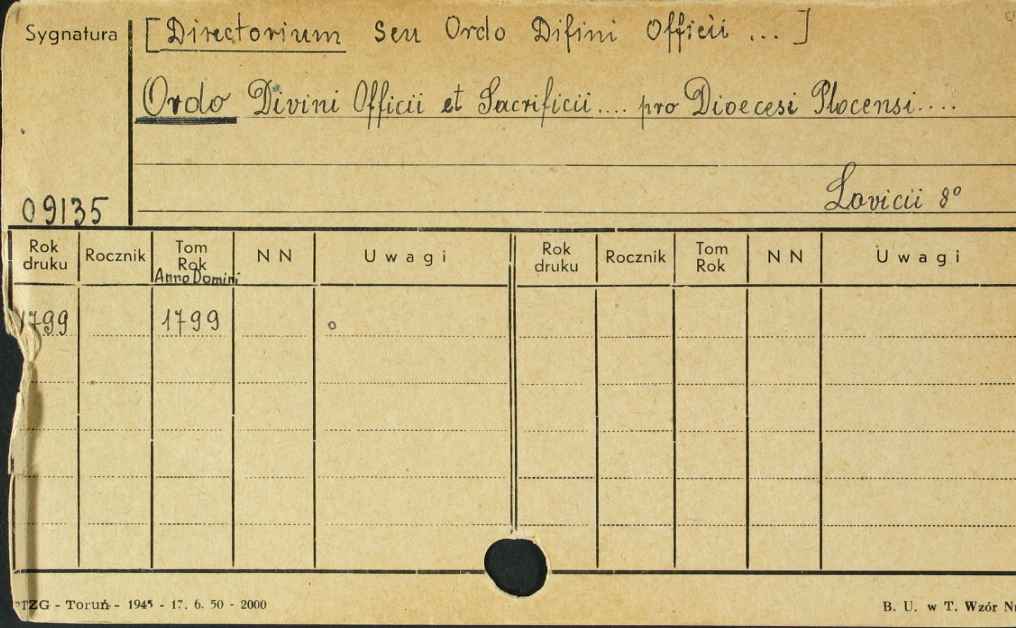 Sygnatura
[Directorium seu Ordo Difini Officii ...]
Ordo Divini Officii et Sacrificii.... pro Dioecesi Plocensi....
Lovicii 8°
09135
Rok druku Rocznik Tom Rok Anno Domini NN Uwagi Rok druku Rocznik Tom Rok NN Uwagi
1799 1799 o
PTZG - Toruń - 1945 - 17. 6. 50 - 2000
B. U. w T. Wzór Nr